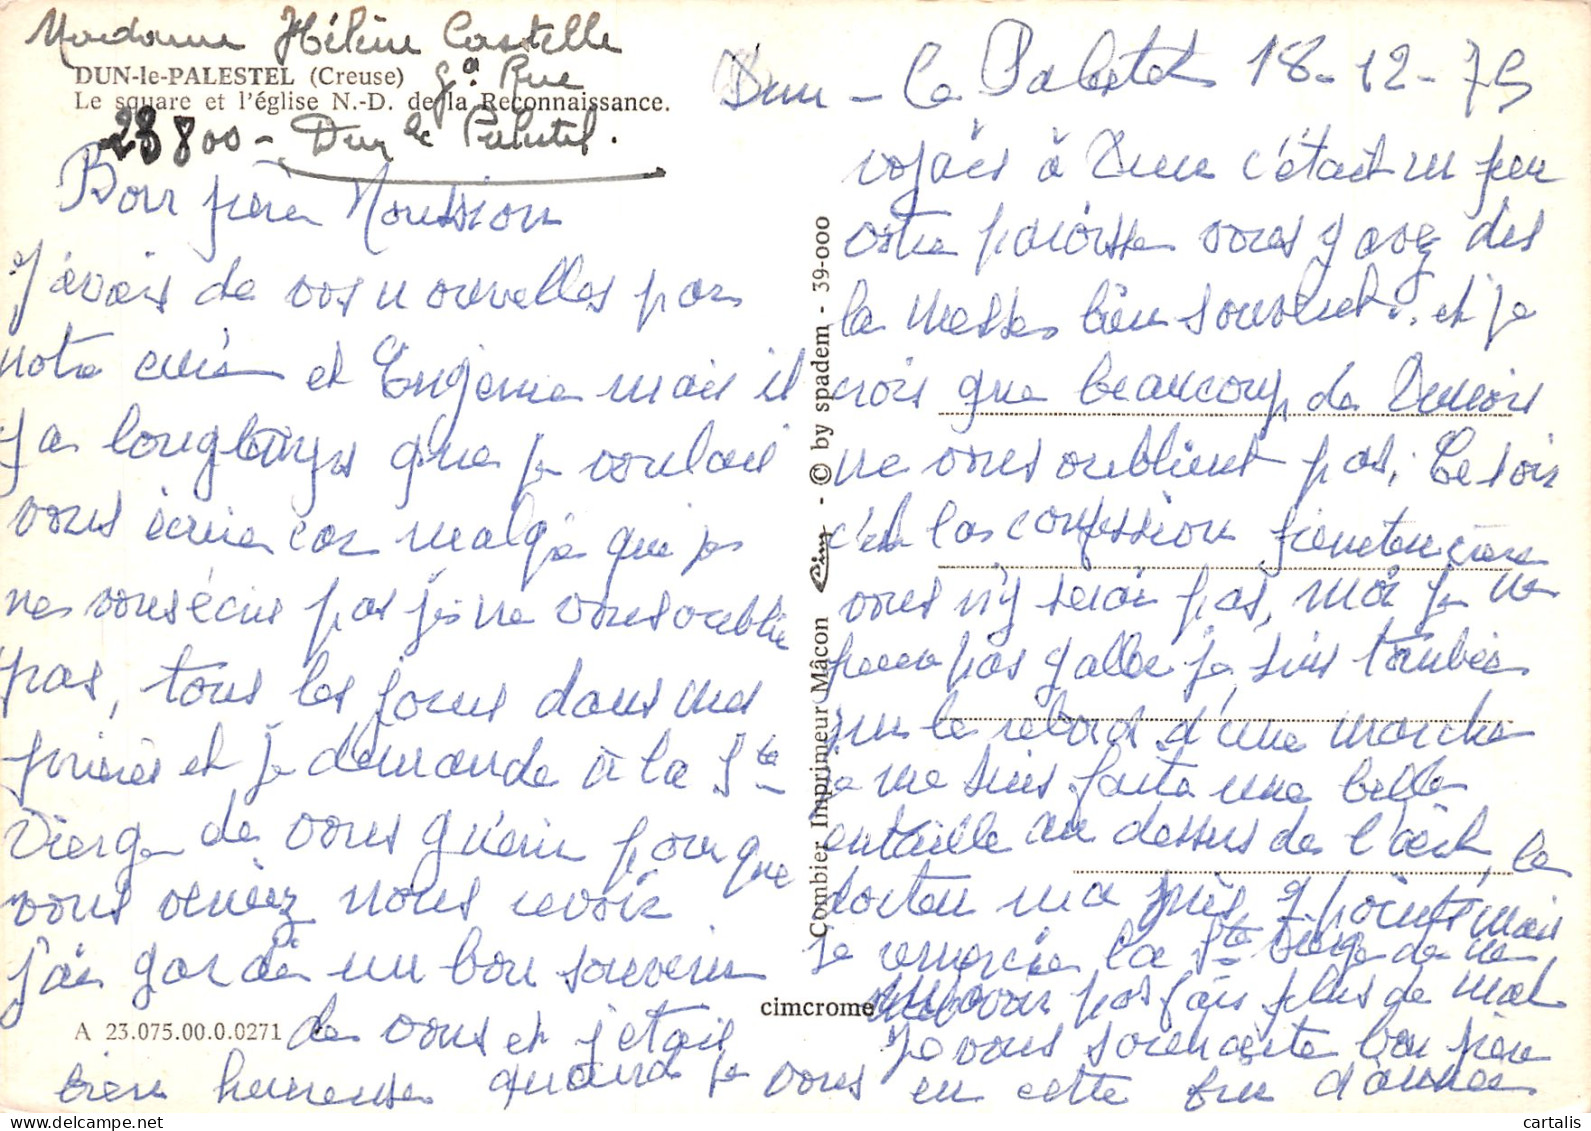 Madame Hélène Castelle
DUN-le-PALESTEL (Creuse)
Gde Rue
Le square et l'église N.-D. de la Reconnaissance.
23800 - Dun le Palestel.
Bon père Moussion
J'avais de vos nouvelles par
notre curé et Eugénie mais il
y a longtemps que je voulais
vous écrire car malgré que je
ne vous écris pas je ne vous oublie
pas, tous les jours dans mes
prières et je demande à la Ste
Vierge de vous guérir pour que
vous veniez nous revoir
j'ai gardé un bon souvenir
de vous et j'étais
bien heureuse quand je vous
A 23.075.00.0.0271
Combier Imprimeur Mâcon - Cim - © by spadem - 39-000
cimcrome
Dun - Le Palestel 18-12-75
voyais à Dun c'était un peu
votre paroisse vous y avez dis
la messe bien souvent. et je
crois que beaucoup de Dunois
ne vous oublient pas. Ce soir
c'est la confession
vous n'y serai pas, moi je ne
peux pas y aller je suis tombée
sur le rebord d'une marche
je me suis faite une belle
entaille au dessus de l'œil, le
docteur m'a pris 2 points mais
je remercie la Ste Vierge de ne
m'avoir pas fais plus de mal
Je vous souhaite bon père
en cette fin d'année